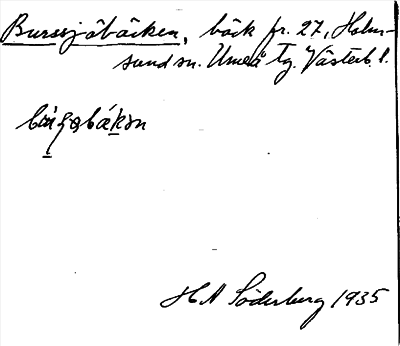 Burssjöbäcken, bäck fr. 27, Holm-
sund sn. Umeå tg. Västerb. l.
H A Söderberg 1935